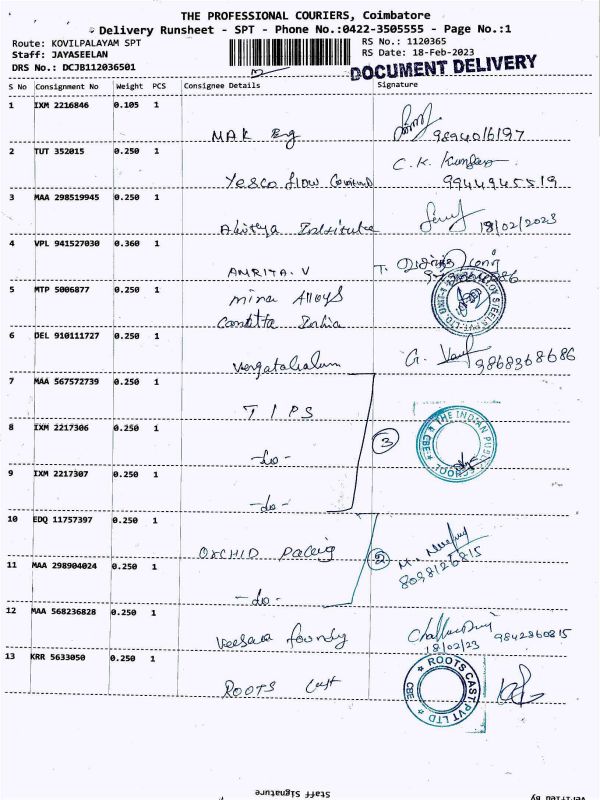 THE PROFESSIONAL COURIERS, Coimbatore
Delivery Runsheet - SPT - Phone No.:0422-3505555 - Page No.:1
Route: KOVILPALAYAM SPT
RS No.: 1120365
Staff: JAYASEELAN
RS Date: 18-Feb-2023
DRS No.: DCJB112036501
DOCUMENT DELIVERY
S No Consignment No Weight PCS Consignee Details Signature
1 IXM 2216846 0.105 1
MAK Eng 9894016197
2 TUT 352015 0.250 1
C. K.
Yesco flow Control 9944945519
3 MAA 298519945 0.250 1
Institute 18/02/2023
4 VPL 941527030 0.360 1
AMRITA. V T.
5 MTP 5006877 0.250 1
mina Alloys
India
6 DEL 910111727 0.250 1
G. 9868368686
7 MAA 567572739 0.250 1
T I P S
THE INDIAN PUBLIC SCHOOL
CBE
8 IXM 2217306 0.250 1
3
-do-
9 IXM 2217307 0.250 1
-do-
10 EDQ 11757397 0.250 1
ORCHID
2
11 MAA 298904024 0.250 1
8098126815
-do-
12 MAA 568236828 0.250 1
foundry 9842860815
18/02/23
13 KRR 5633050 0.250 1
ROOTS Cast
ROOTS CAST PVT LTD
CBE
Staff Signature